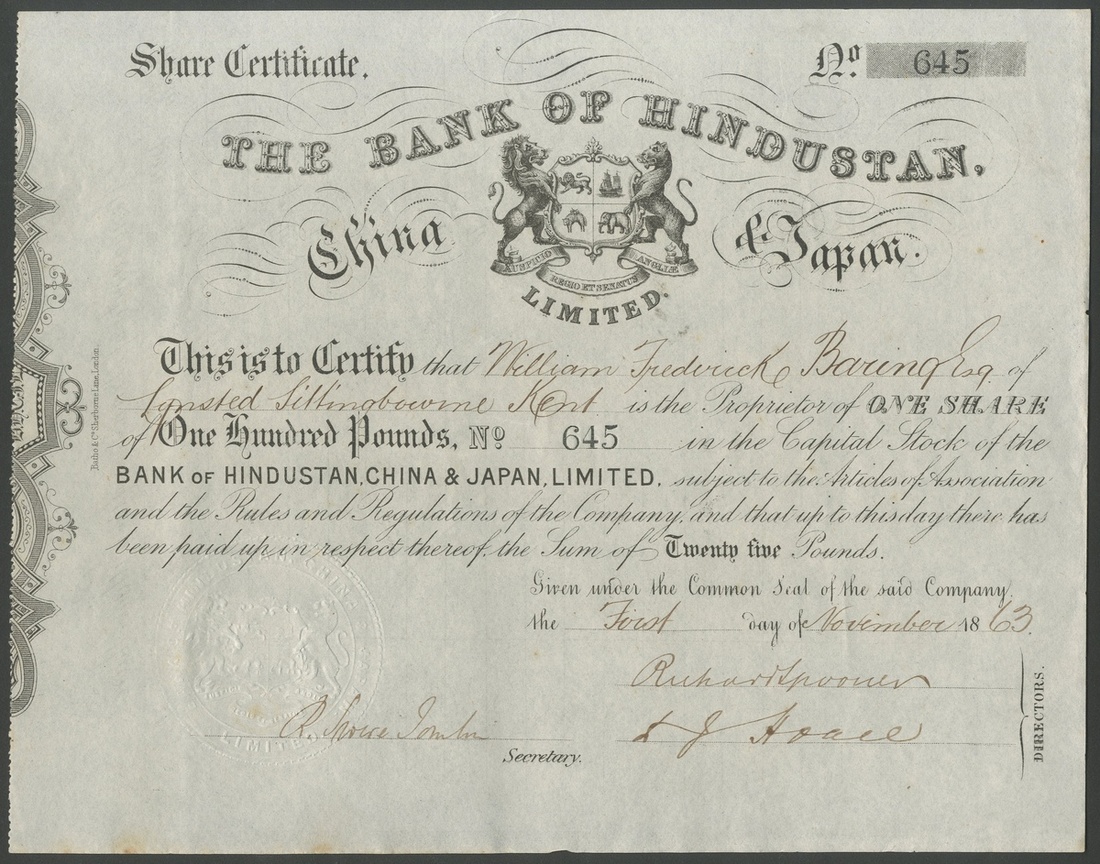 Share Certificate.
No. 645
THE BANK OF HINDUSTAN,
China & Japan.
AUSPICIO REGIO ET SENATUS ANGLIÆ
LIMITED.
This is to Certify that William Frederick Baring Esq. of
Lynsted Sittingbourne Kent is the Proprietor of ONE SHARE
of One Hundred Pounds, No 645 in the Capital Stock of the
BANK OF HINDUSTAN, CHINA & JAPAN, LIMITED, subject to the Articles of Association
and the Rules and Regulations of the Company, and that up to this day there has
been paid up in respect thereof, the Sum of Twenty five Pounds.
Given under the Common Seal of the said Company,
the First day of November 1863.
Richard Spooner
Secretary.
DIRECTORS.
Batho & Co. Sherborne Lane, London.